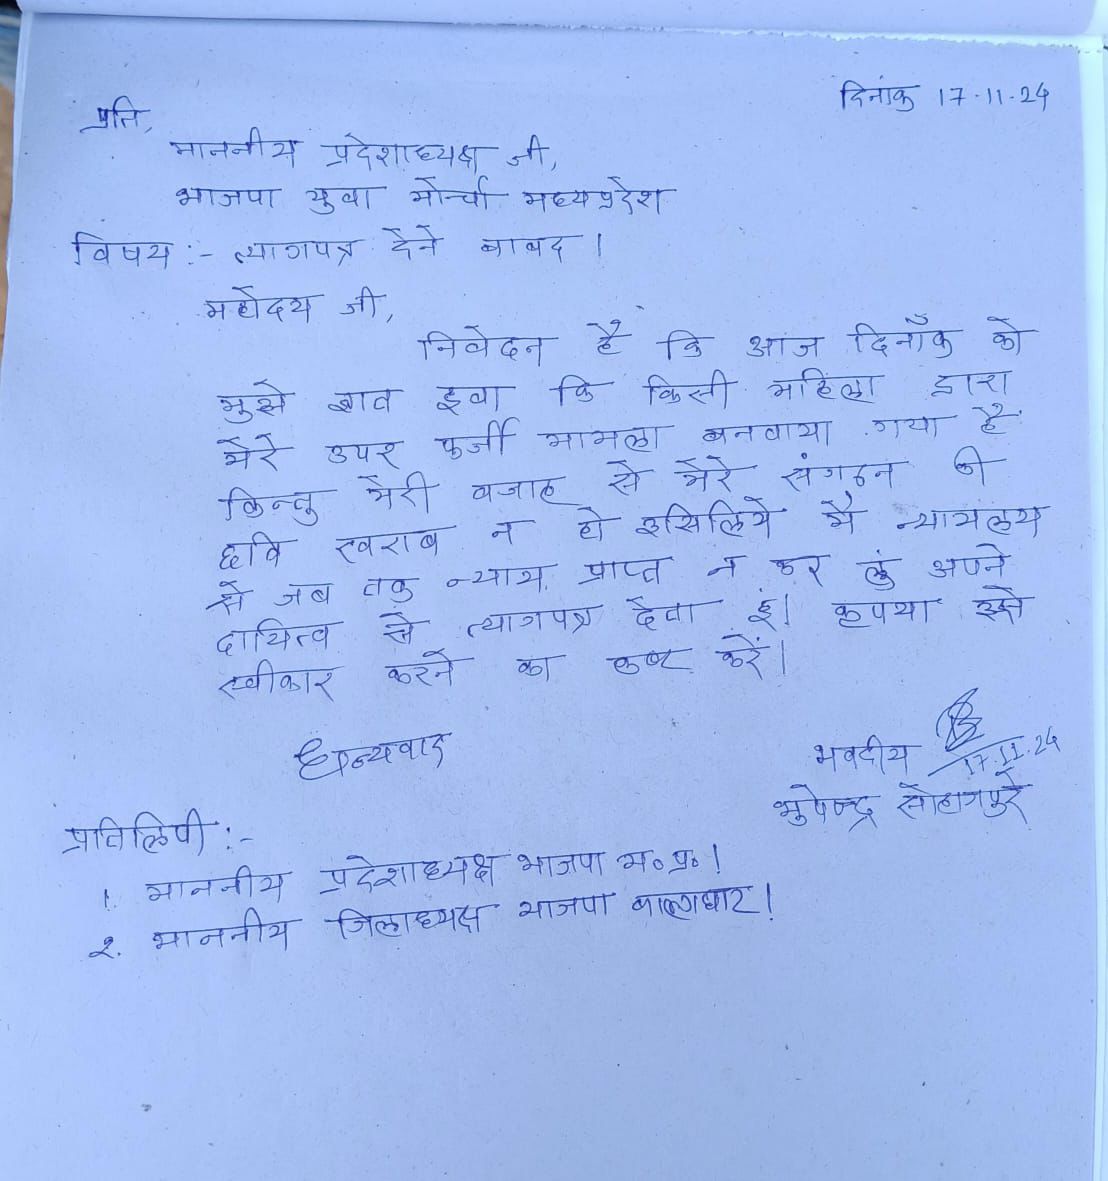 दिनांक 17.11.24
प्रति,
माननीय प्रदेशाध्यक्ष जी,
भाजपा युवा मोर्चा मध्यप्रदेश
विषय :- त्यागपत्र देने बाबद ।
महोदय जी,
निवेदन है कि आज दिनाँक को
मुझे ज्ञात हुवा कि किसी महिला द्वारा
मेरे उपर फर्जी मामला बनवाया गया है
किन्तु मेरी वजाह से मेरे संगठन की
छवि खराब न हो इसिलिये मै न्यायलय
से जब तक न्याय प्राप्त न कर लुं अपने
दायित्व से त्यागपत्र देता हूं। कृपया इसे
स्वीकार करने का कष्ट करें।
धन्यवाद
भवदीय
17.11.24
भुपेन्द्र सोहागपुरे
प्रतिलिपी :-
1. माननीय प्रदेशाध्यक्ष भाजपा म॰प्र॰।
२. माननीय जिलाध्यक्ष भाजपा बालाघाट।